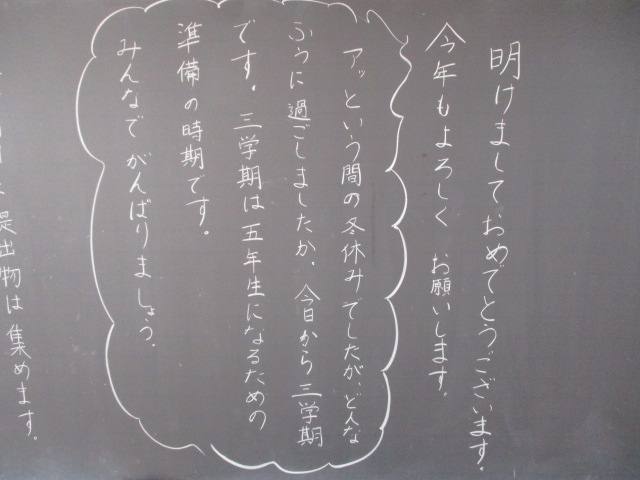 明けましておめでとうございます。
今年もよろしく お願いします。
アッという間の冬休みでしたが、どんな
ふうに過ごしましたか。今日から三学期
です。三学期は五年生になるための
準備の時期です。
みんなで がんばりましょう。
提出物は集めます。